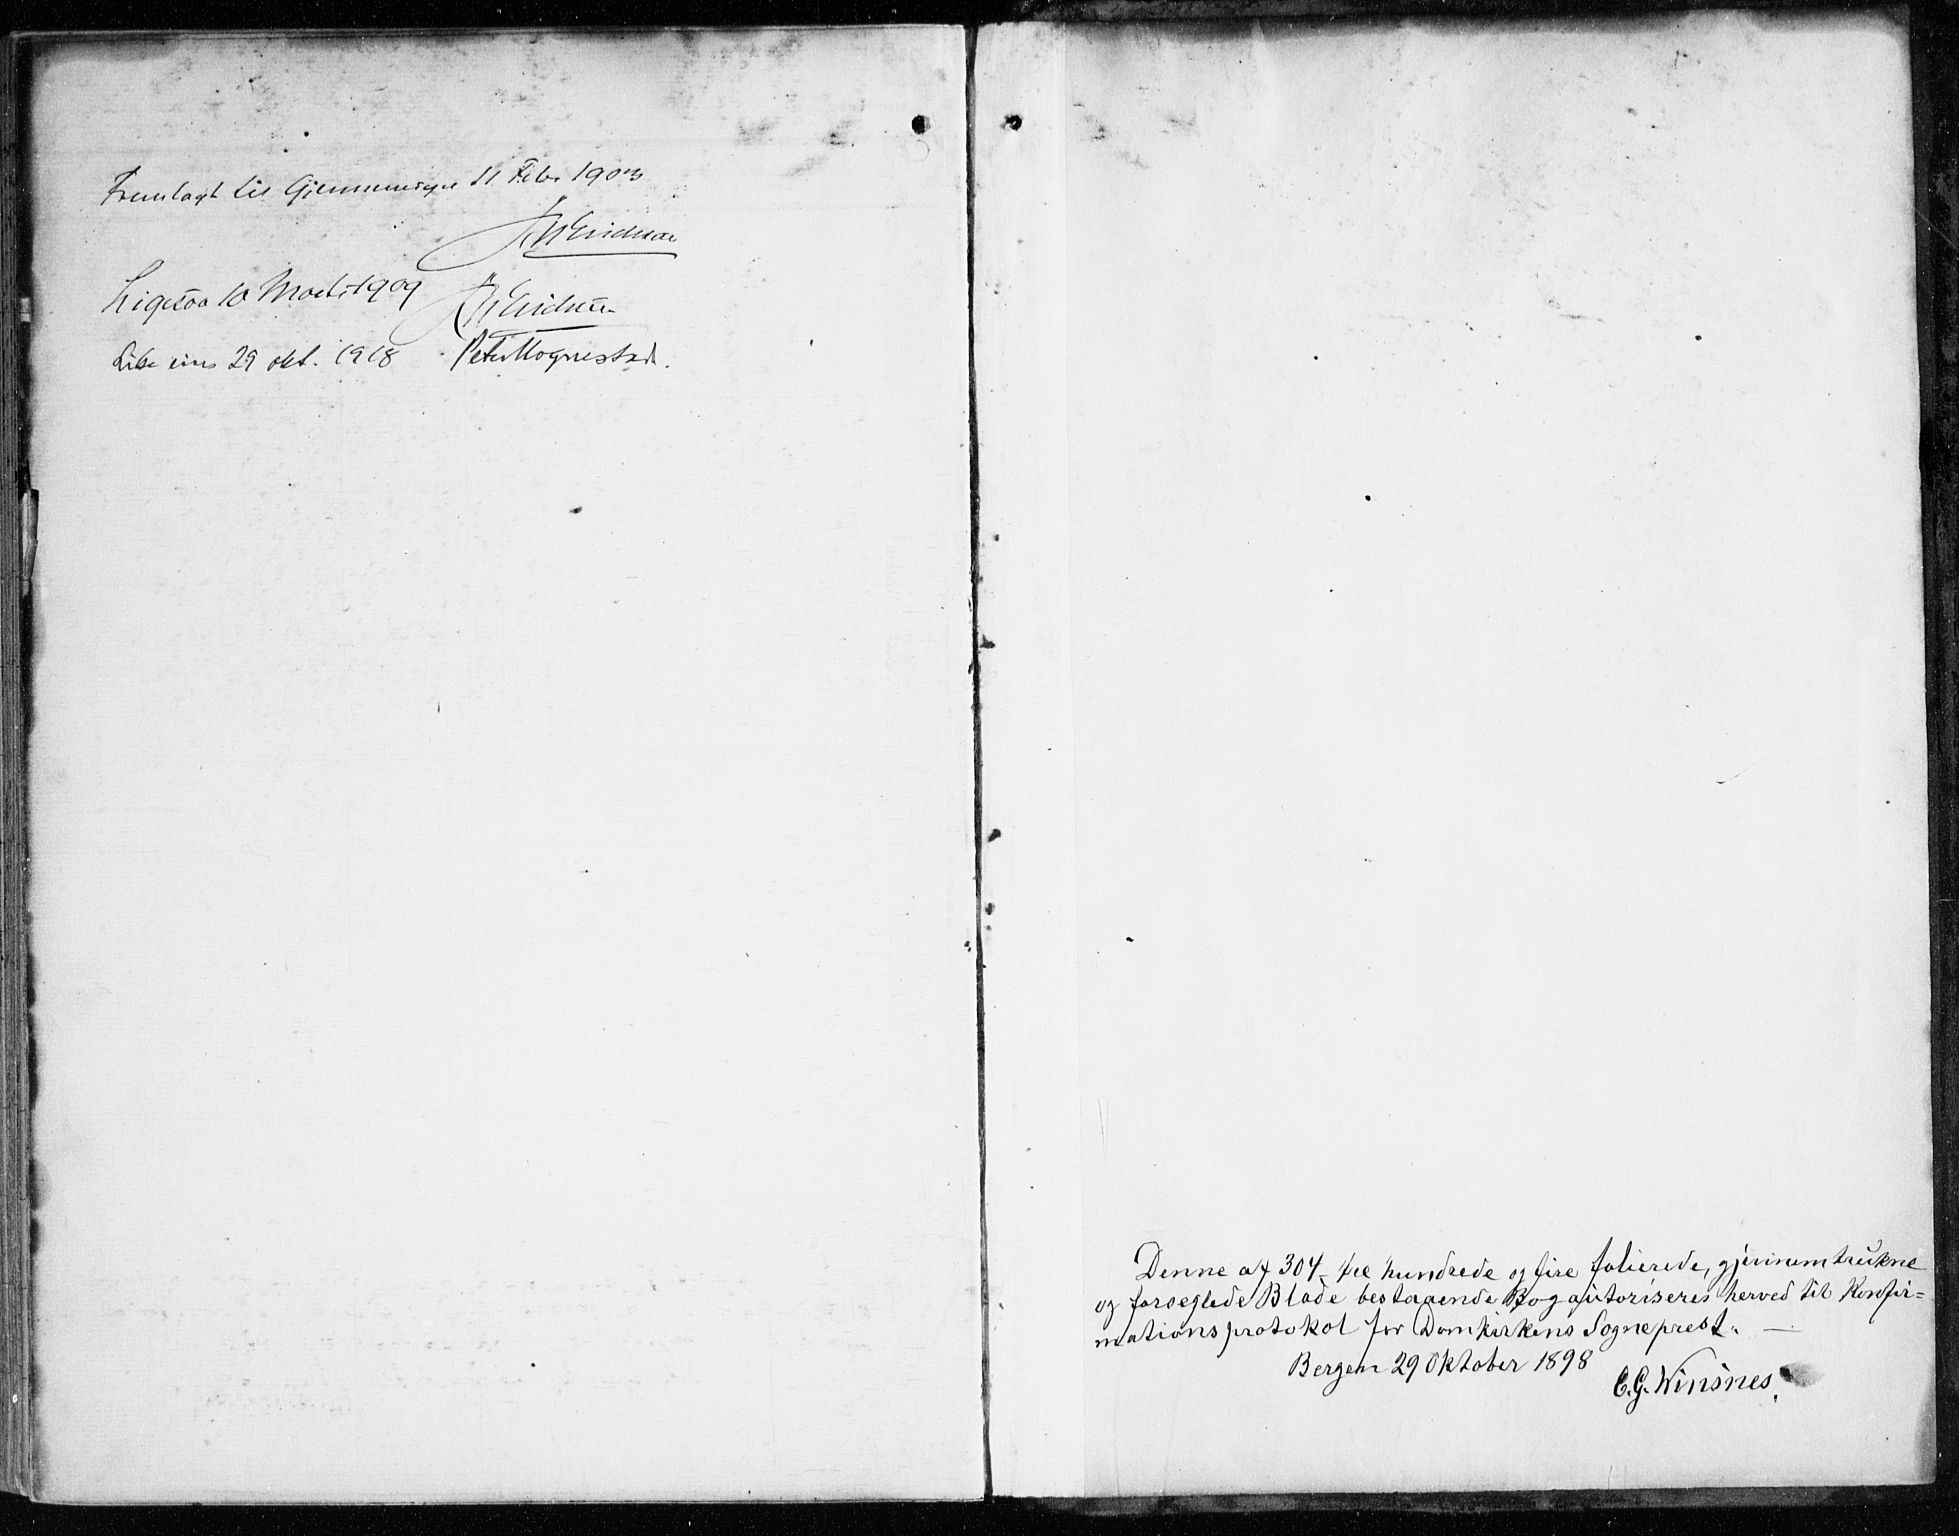 Fremlagt til Gjennemsyn 11 Febr 1903
Erichsen
Ligesaa 10 Marts 1909 Erichsen
Like eins 29 okt. 1918 Peter Hognestad.
Denne af 304 - tre hundrede og fire folierede, gjennemtrukne
og forseglede Blade bestaaende Bog autoriseres herved til Konfir=
mationsprotokol for Domkirkens Sogneprest. —
Bergen 29 Oktober 1898
C.G. Winsnes.